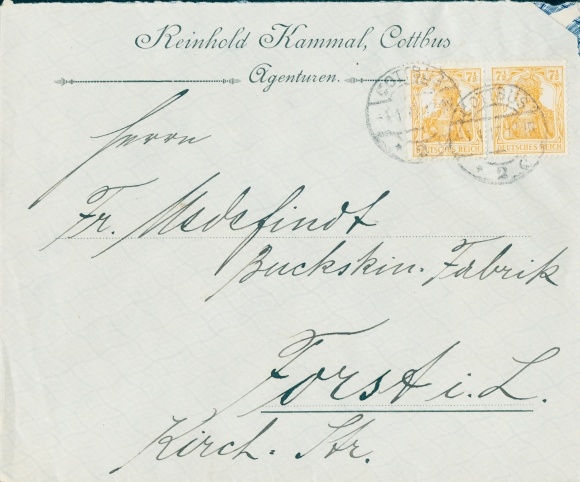 Reinhold Kammal, Cottbus
Agenturen.
7½ 7½
DEUTSCHES REICH DEUTSCHES REICH
COTTBUS COTTBUS
* 2 * 2
Herrn
Fr.
Buckskin-Fabrik
Forst i. L.
Kirch-Str.